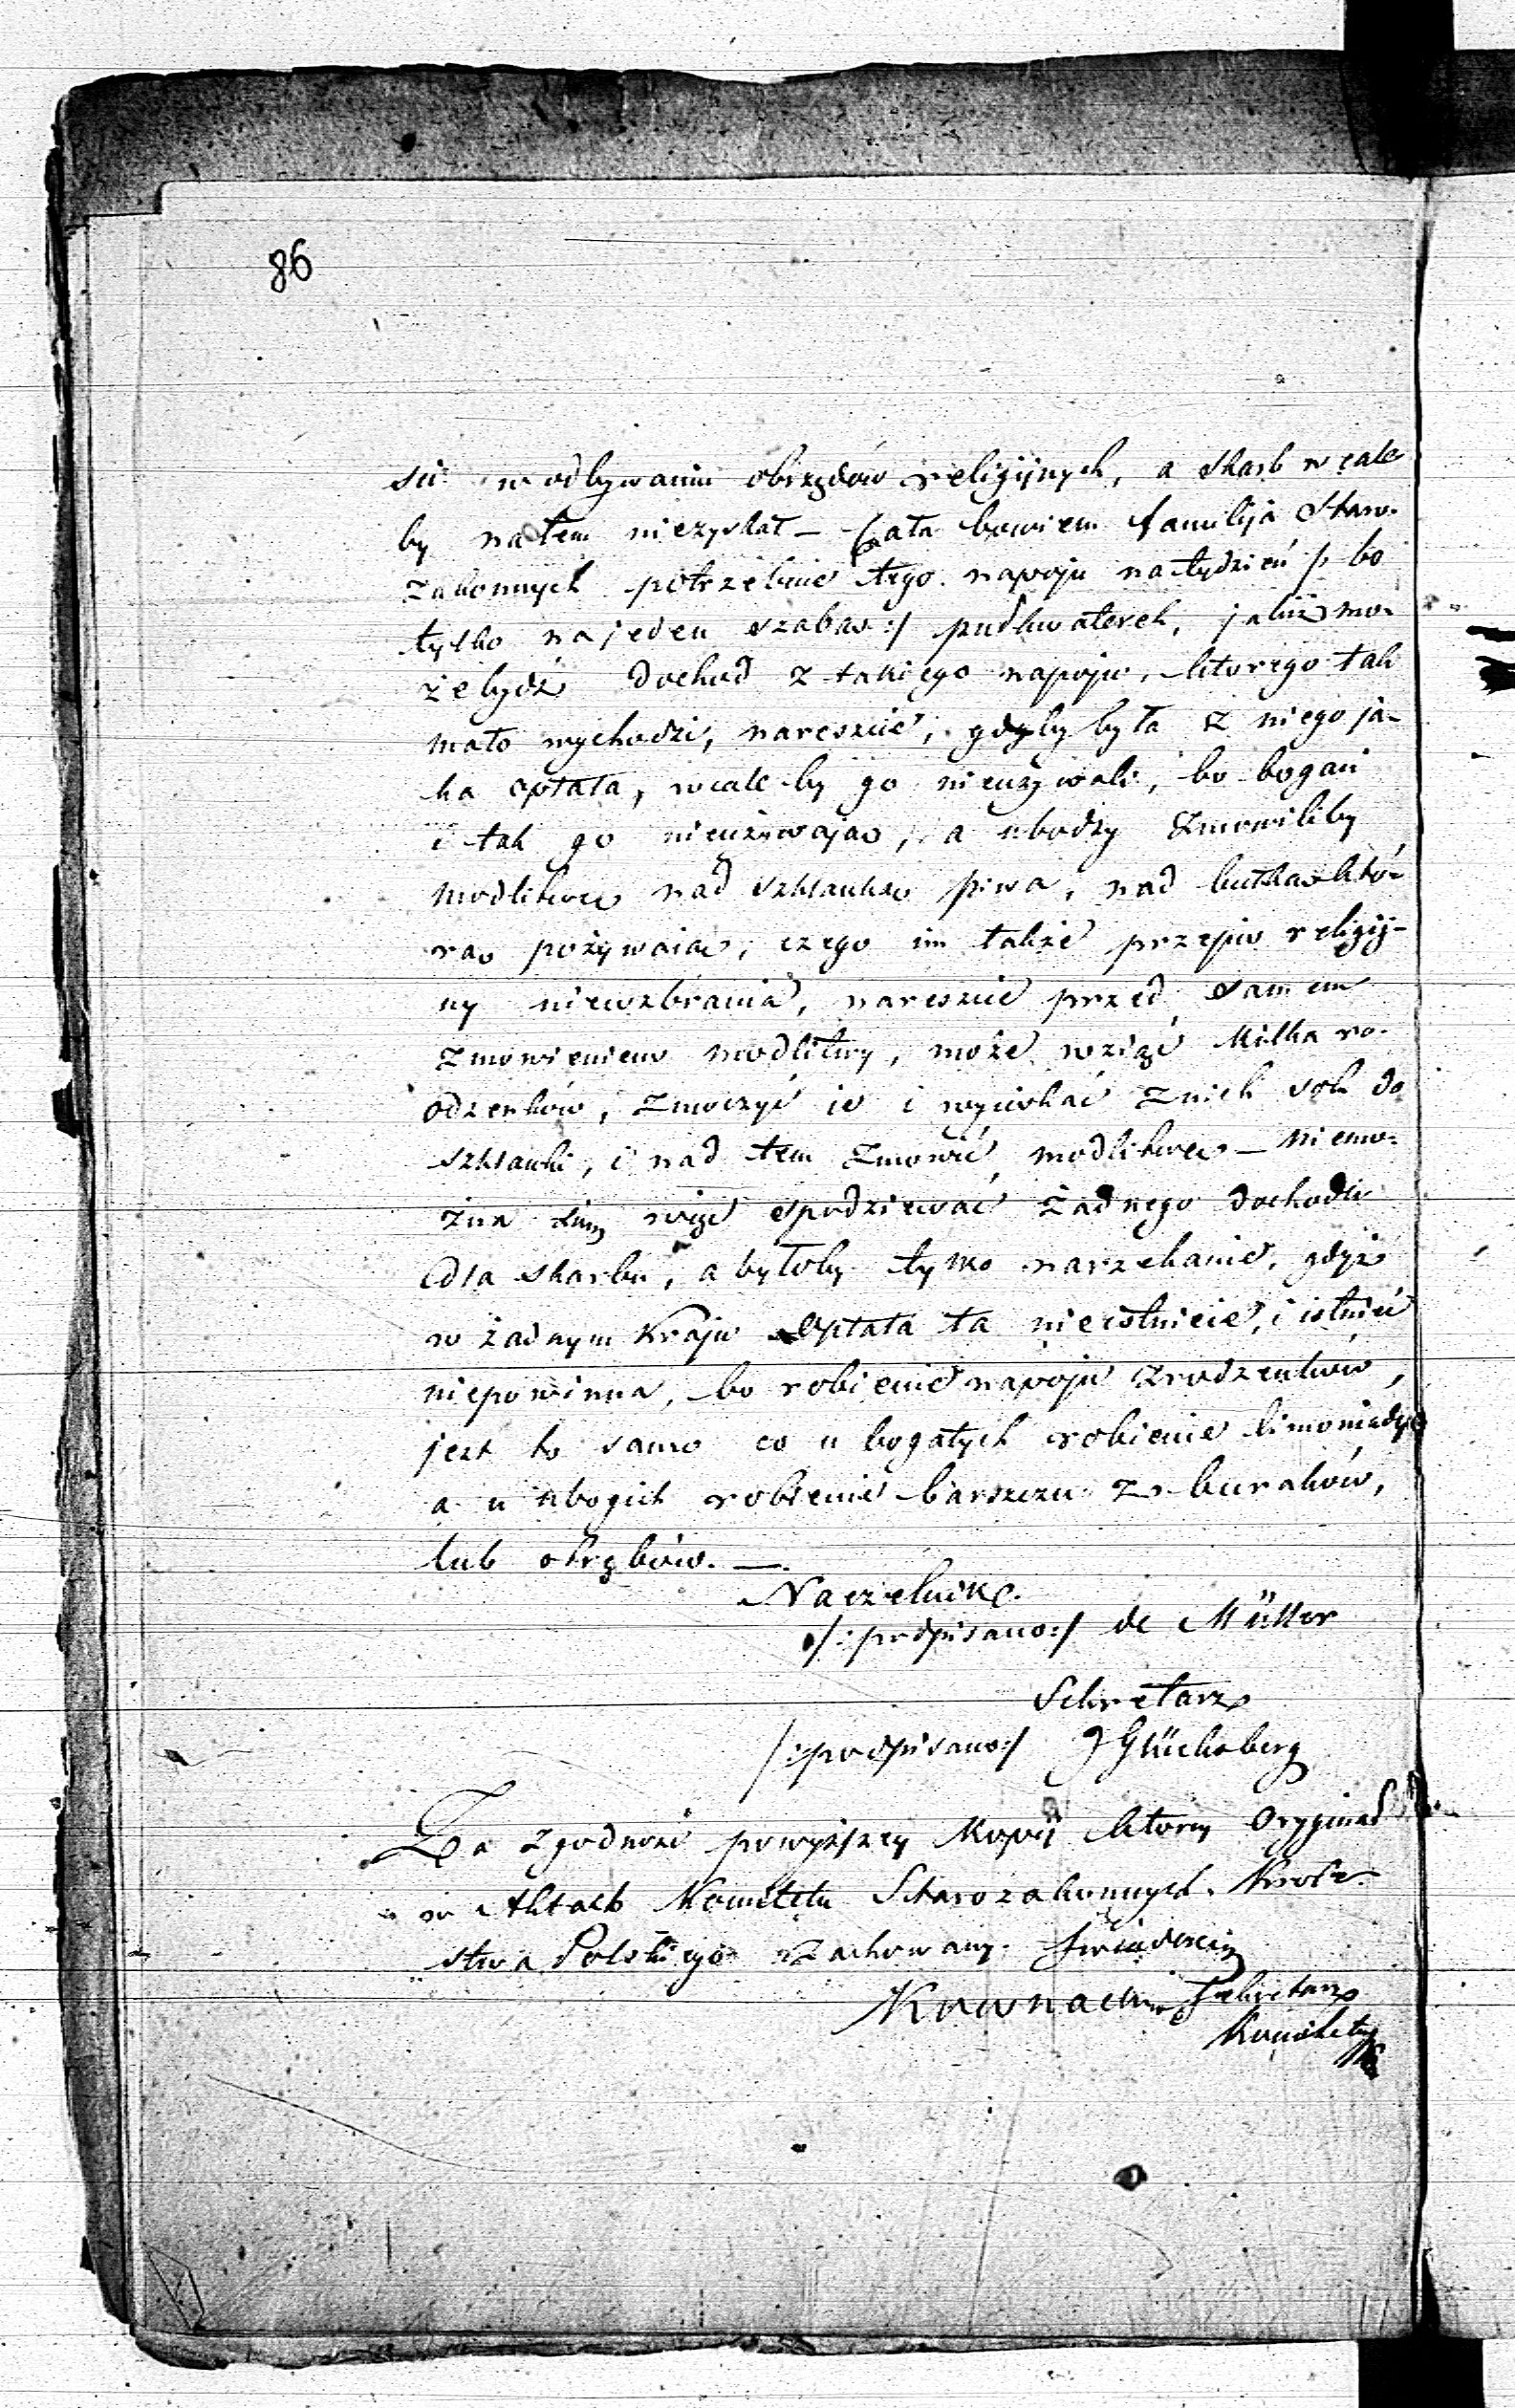 86
się w odbywaniu obrzędów religijnych, a Skarb wcale
by natem niezyskał — Cała bowiem familija Staro-
zakonnych potrzebuie tego napoju natydzień /: bo
tylko najeden szabas :/ pułkwaterek, jakiż mo-
żebydź dochod z takiego napoju, ktorego tak
mało wychodzi, nareszcie, gdyby była z niego ja-
ka opłata, wcale by go nieużywali, bo bogaci
i tak go nieużywają, a ubodzy zmowiliby
modlitwę nad szklanką piwa, nad bułką któ-
rą pożywaią, czego im także przepis religij-
ny niewzbrania, nareszcie przed samem
zmowieniem modlitwy, może wziąć kilka ro-
dzenków, zmoczyć ie i wyciskać znich sok do
szklanki, i nad tem zmowić modlitwę — niemo-
żna więc spodziewać żadnego dochodu
dla skarbu, a byłoby tylko narzekanie, gdyż
w żadnym Kraju Opłata ta nieistnieie, i istnieć
niepowinna, bo robienie napoju zrodzenków,
jest to samo co u bogatych robienie limoniady
a u ubogich robienie barszczu z buraków,
lub otrębów. —
Naczelnik
/: podpisano :/ de Müller
Sekretarz
/: podpisano :/ J Glücksberg
Za zgodność powyższey Kopii ktorey Oryginał
w Aktach Komitetu Starozakonnych Krole-
stwa Polskiego zachowany. Swiadczy
Kownacki Sekretarz
Komitetu